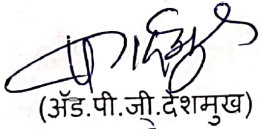 (ॲड.पी.जी.देशमुख)